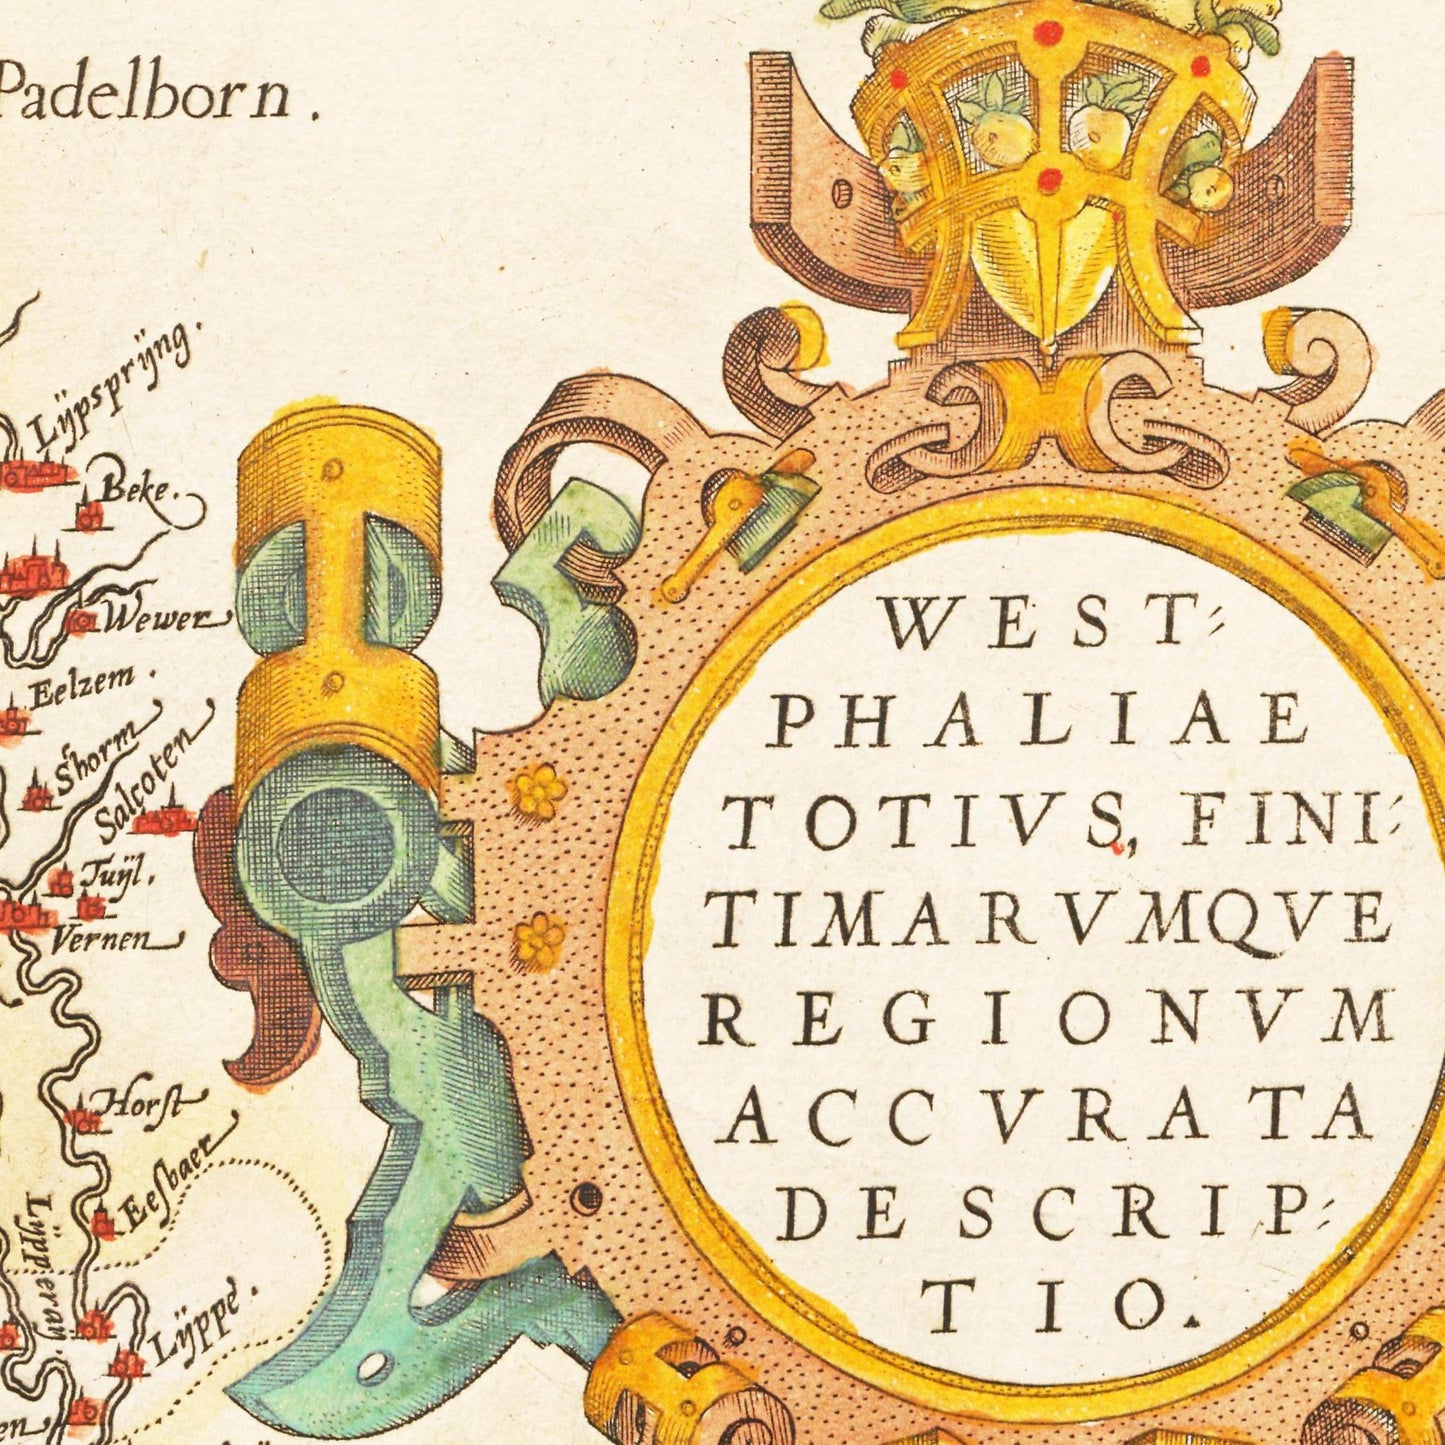 Padelborn.
Lÿpsprÿng.
Beke.
Wewer
Eelzem.
Shorm
Salcoten
Tuÿl.
Vernen
Horſt
Eeſbaer
Lÿppe.
WEST⸗
PHALIAE
TOTIVS, FINI⸗
TIMARVMQVE
REGIONVM
ACCVRATA
DESCRIP⸗
TIO.